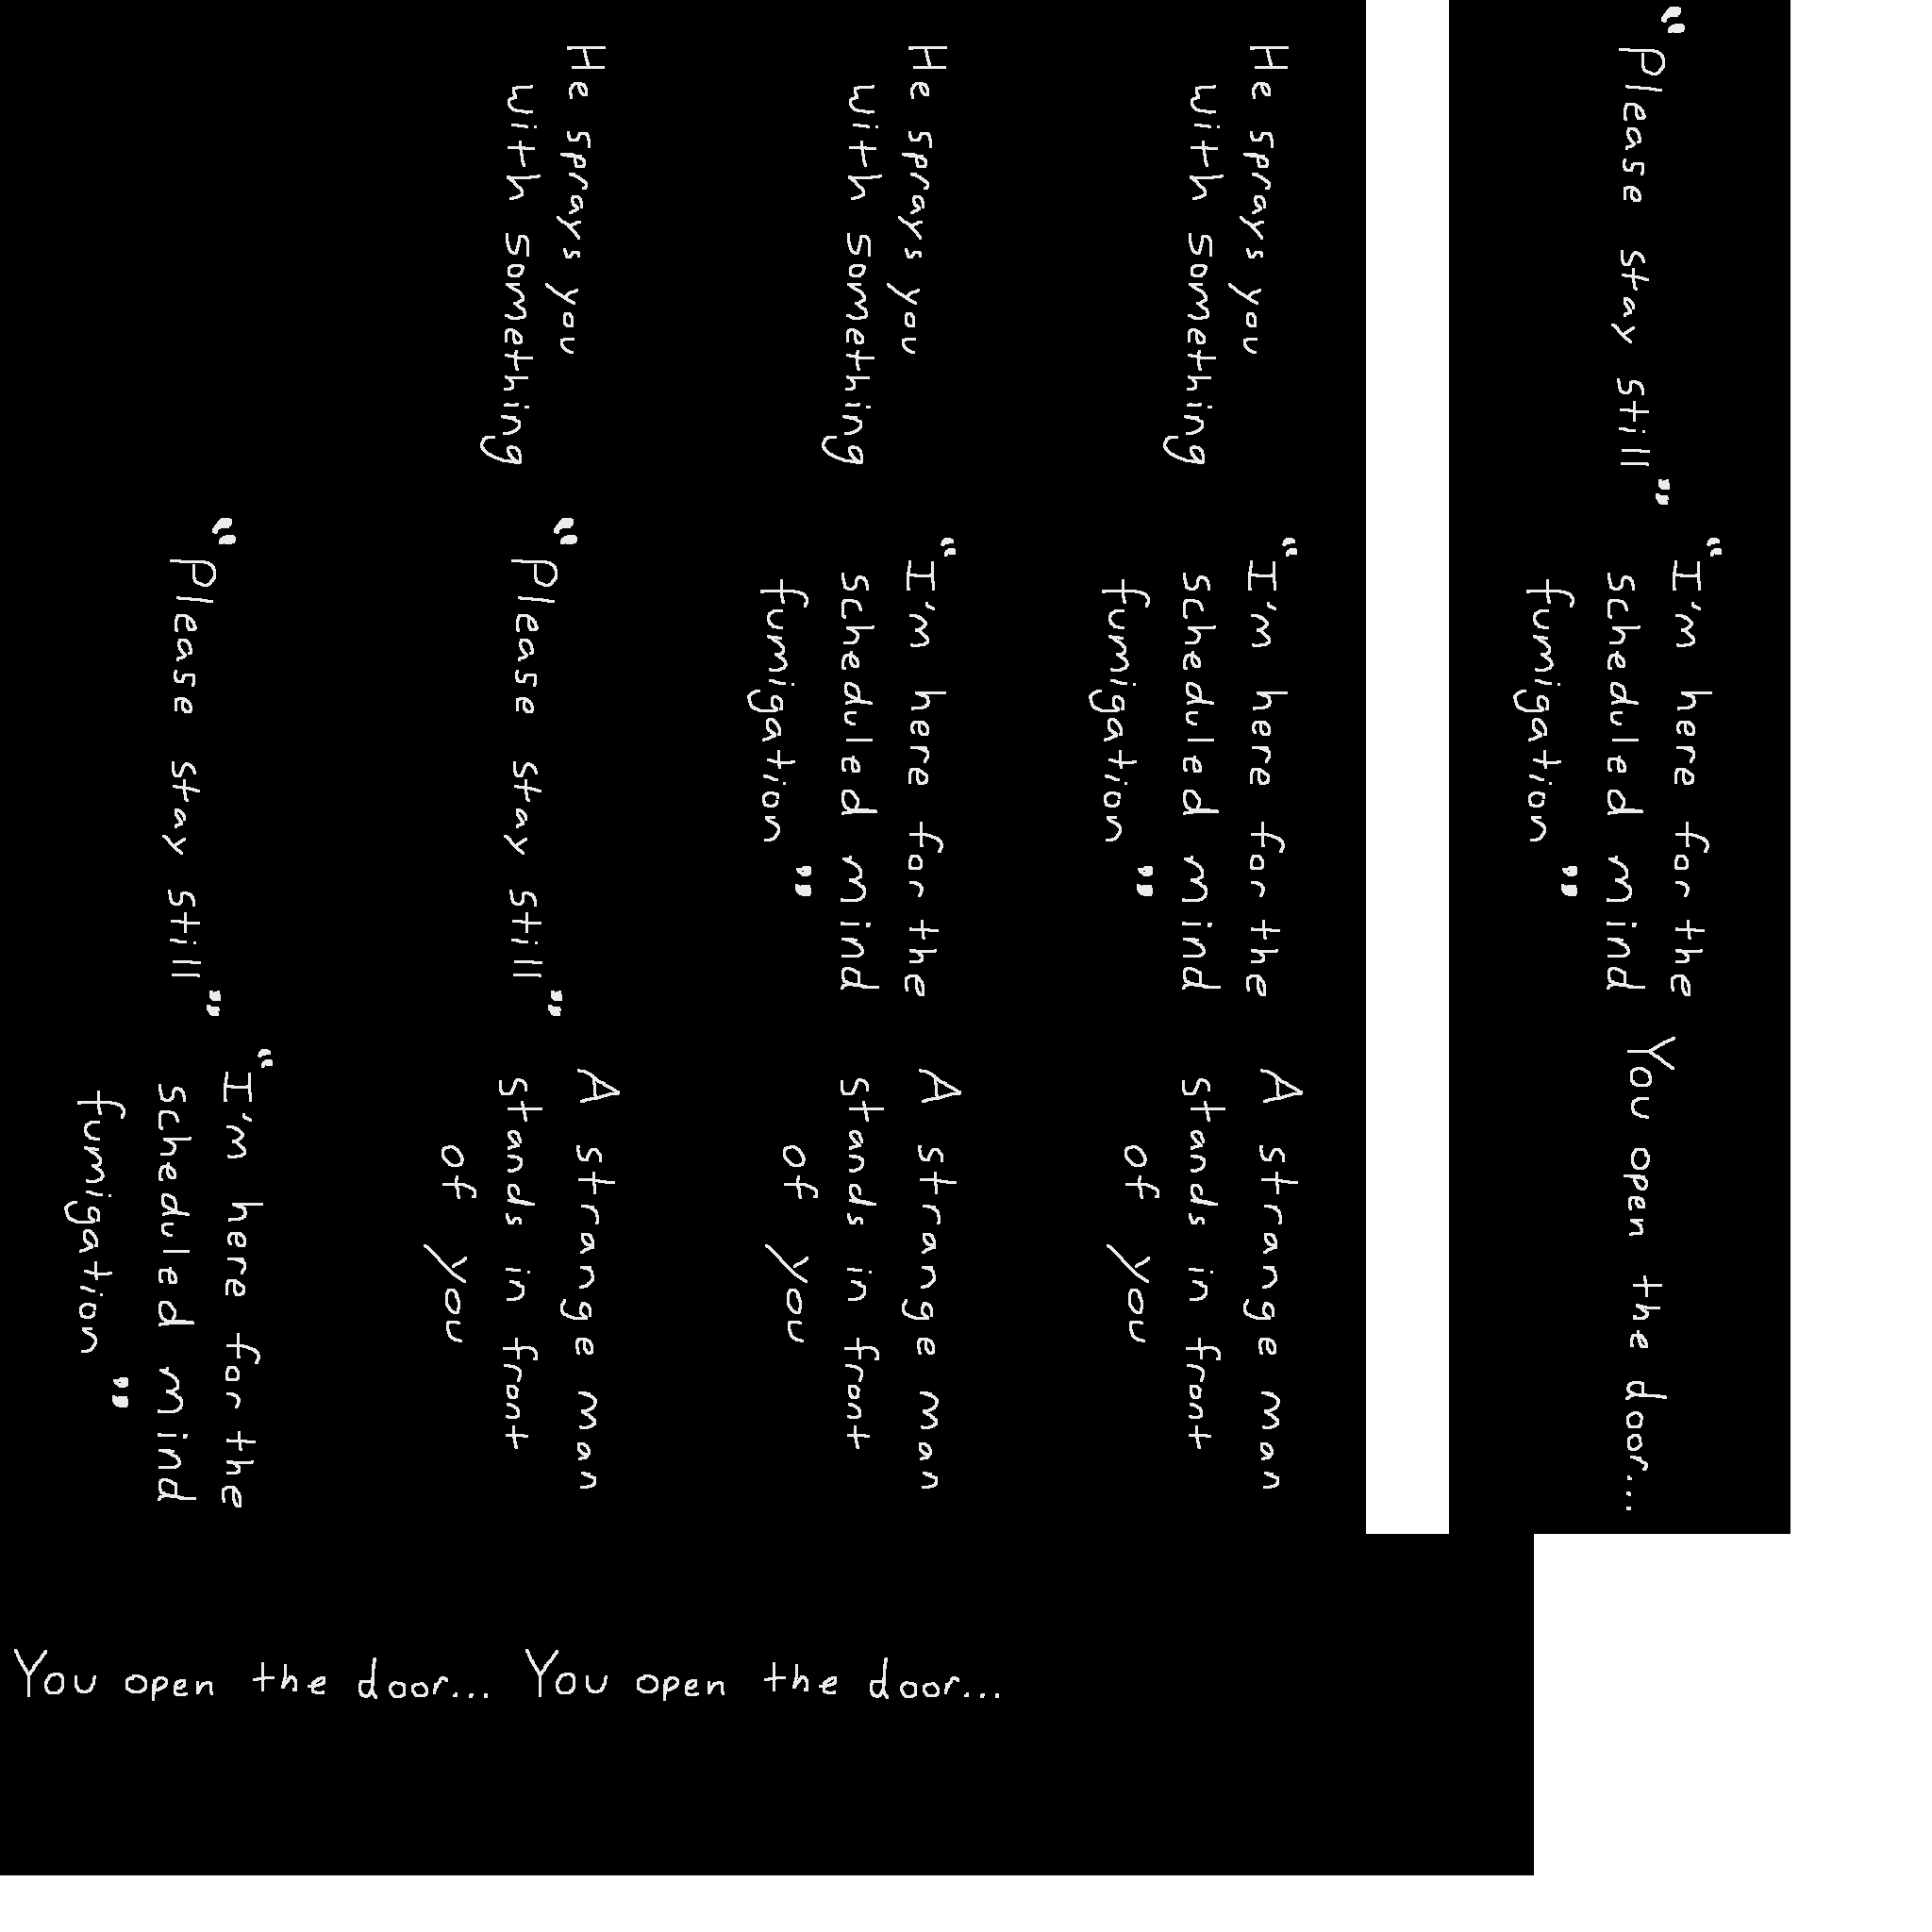 “Please stay still”
“I'm here for the
scheduled mind
fumigation”
You open the door...
He sprays you
with something
“I'm here for the
scheduled mind
fumigation”
A strange man
stands in front
of you
He sprays you
with something
“I'm here for the
scheduled mind
fumigation”
A strange man
stands in front
of you
He sprays you
with something
“Please stay still”
A strange man
stands in front
of you
“Please stay still”
“I'm here for the
scheduled mind
fumigation”
You open the door...
You open the door...